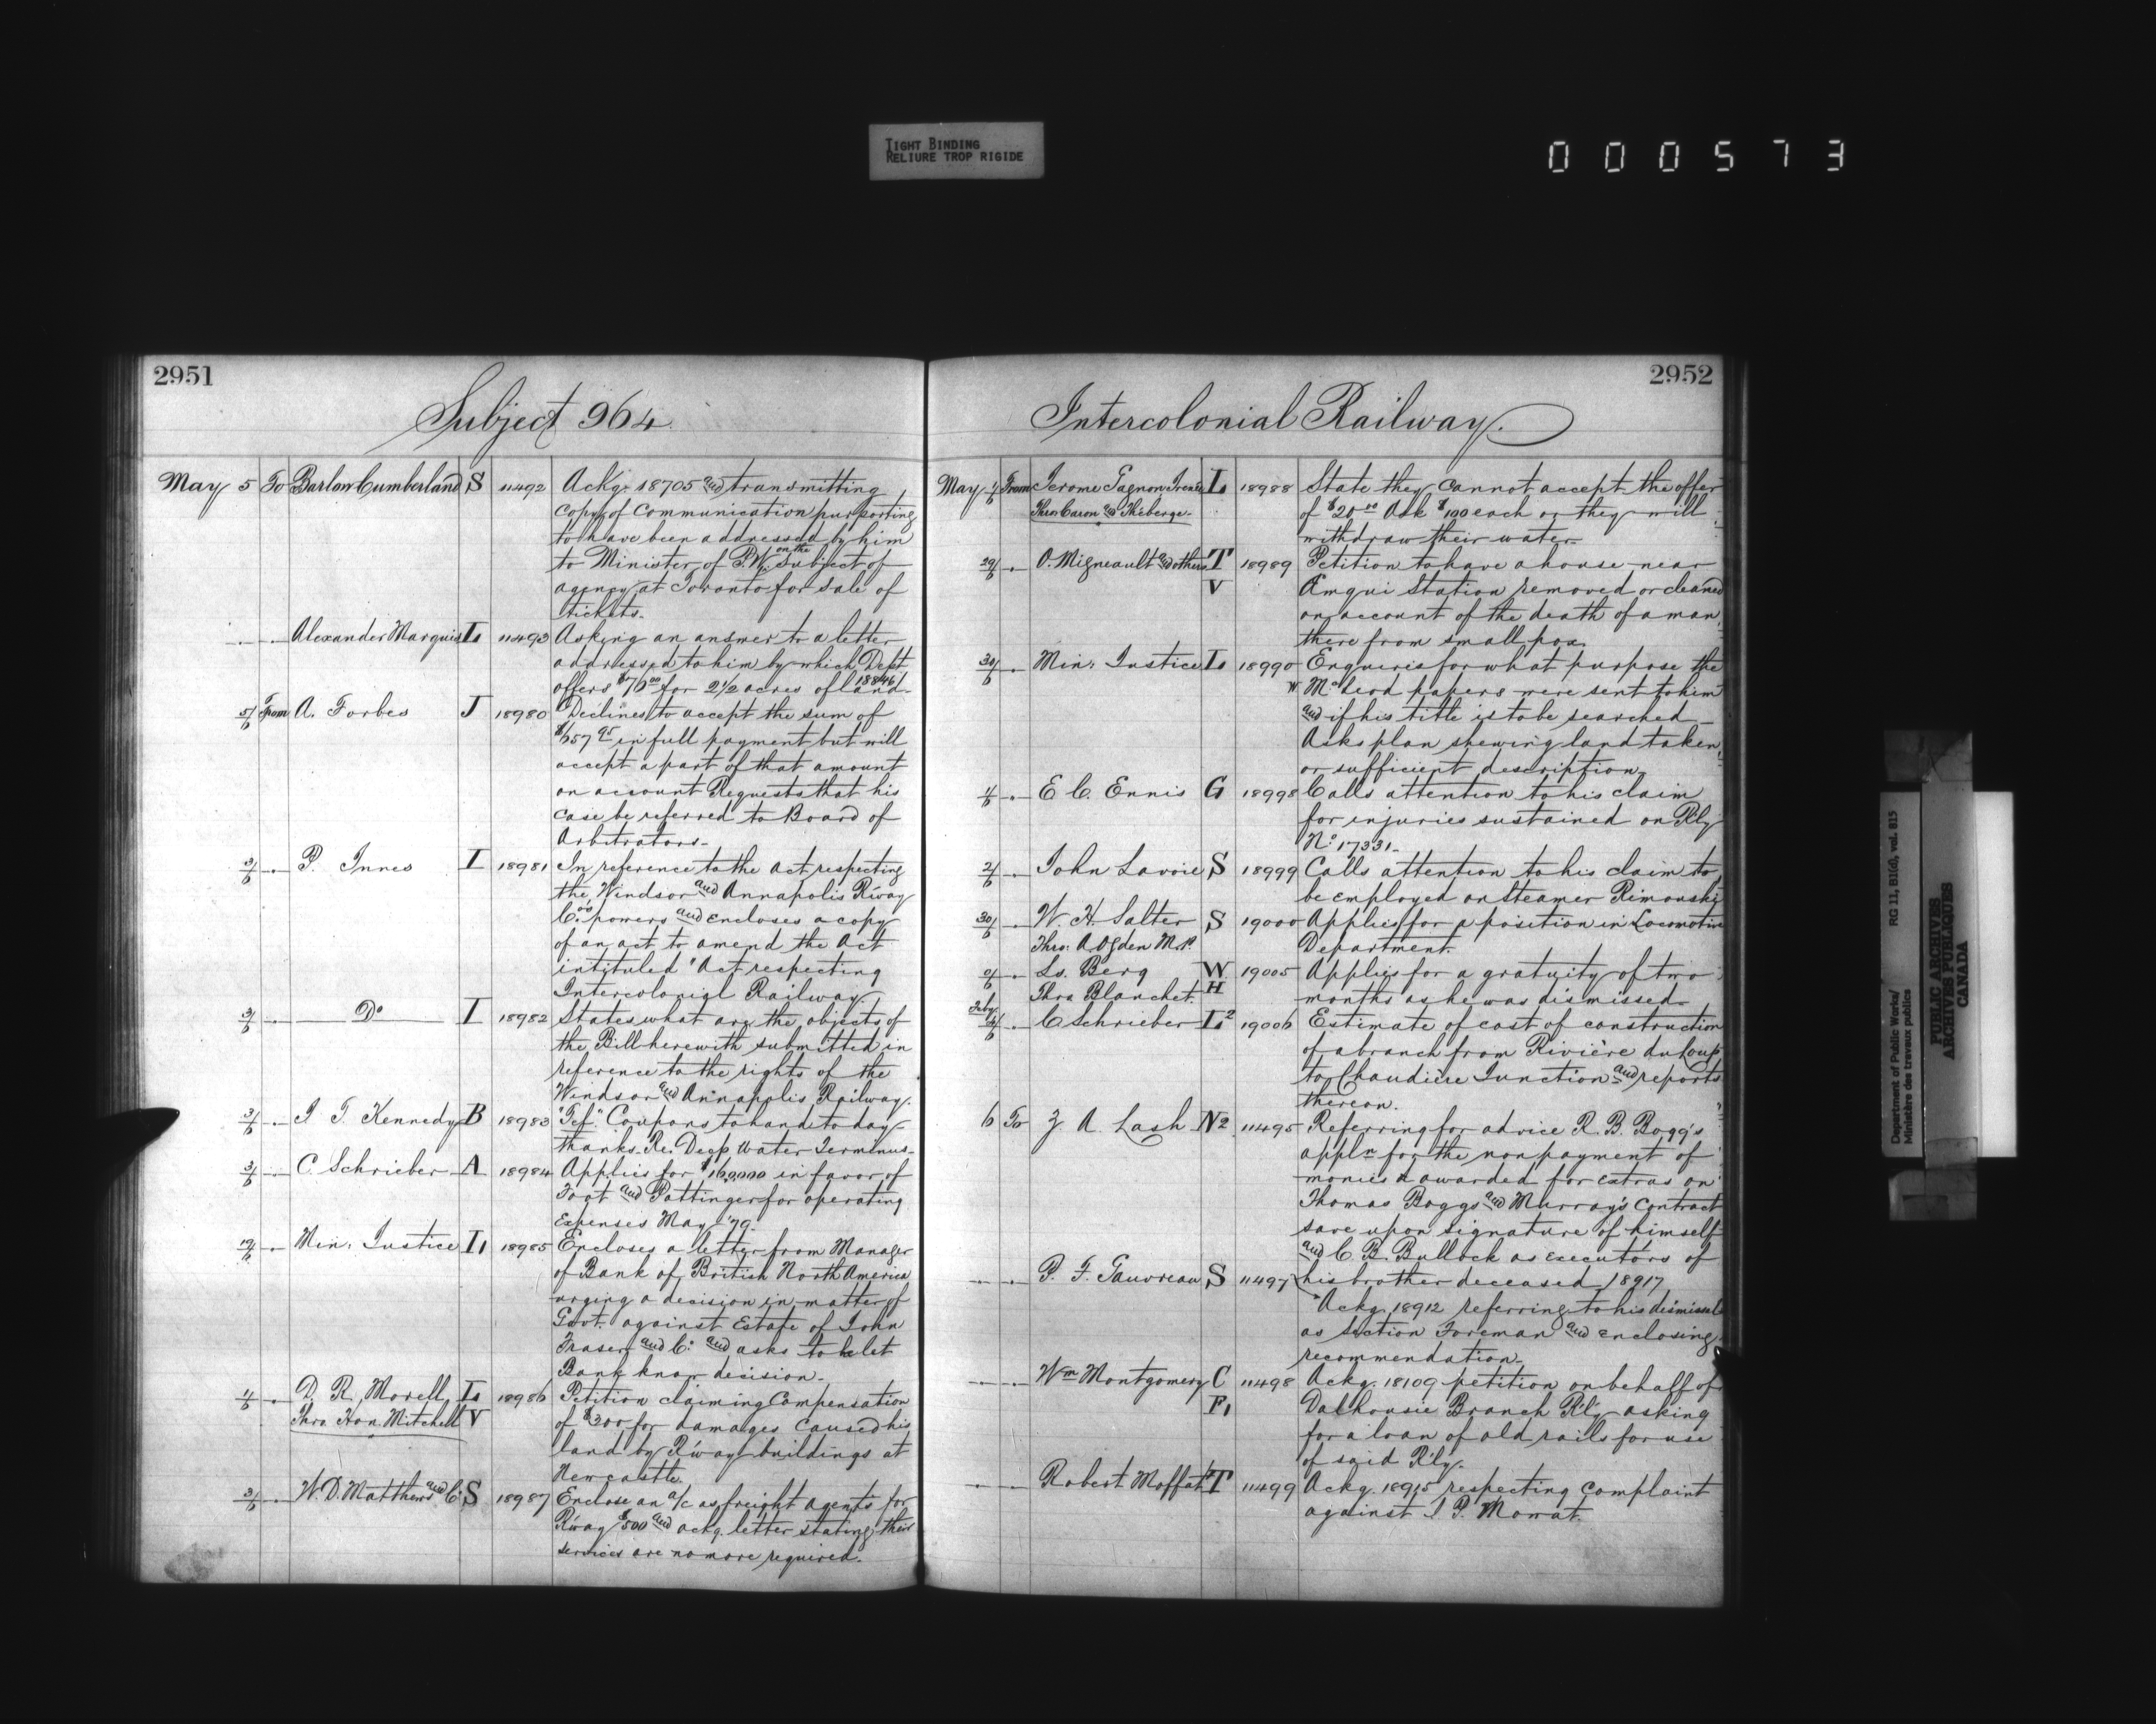 TIGHT BINDING
RELIURE TROP RIGIDE
000573
2951
Subject 964.
May 5 To Barlow Cumberland S 11492 Ackg. 18705 and transmitting
copy of communication purporting
to have been addressed by him
to Minister of P.W. on the subject of
agency at Toronto for sale of
tickets.
" " Alexander Marquis L 11493 Asking an answer to a letter
addressed to him by which Dept
offers $76 00 for 2 1/2 acres of land. 18846
5/6 From A. Forbes J 18980 Declines to accept the sum of
in full payment but will
accept a part of that amount
on account Requests that his
case be referred to Board of
Arbitrators.
3/6 " P. Innes I 18981 In reference to the act respecting
the Windsor and Annapolis R'way
Co.'s powers and encloses a copy
of an act to amend the Act
intituled "Act respecting
Intercolonial Railway.
3/6 " Do I 18982 States what are the objects of
the Bill herewith submitted in
reference to the rights of the
Windsor and Annapolis Railway.
3/6 " I T. Kennedy B 18983 "Tef." Coupons to hand to day
thanks. Re. Deep Water Terminus.
3/6 " C. Schrieber A 18984 Applies for $160,000 in favor of
Foot and Pottinger for operating
Expenses May '79.
" Min. Justice L 18985 Encloses a letter from Manager
of Bank of British North America
urging a decision in matter of
Govt. against Estate of John
Fraser and Co. and asks to let
Bank know decision.
4/6 " D. R. Morell L 18986 Petition claiming Compensation
Thro Hon. Mitchell V of $300 for damages caused his
land by R'way buildings at
Newcastle.
3/6 " W. D. Matthews and Co S 18987 Enclose an a/c as freight agents for
R'way $500 and ackg. letter stating their
services are no more required.
2952
Intercolonial Railway.
May From Jerome Gagnon L 18988 State they cannot accept the offer
Thro Caron and Théberge. of $20 00 Ask $100 each or they will
withdraw their water.
29/5 " O. Migneault and others T 18989 Petition to have a house near
V Amqui Station removed or cleaned
on account of the death of a man
there from small pox.
30/5 " Min. Justice L 18990 Enquires for what purpose the
W. McLeod papers were sent to him
and if his title is to be searched
Asks plan shewing land taken
or sufficient description
4/6 " E C. Ennis G 18998 Calls attention to his claim
for injuries sustained on Rly
No. 17331.
2/6 " John Lavoie S 18999 Calls attention to his claim to
be employed on Steamer Rimouski
30/5 " W. H. Salter S 19000 Applies for a position in Locomotive
Thro. A Ogden M.P. Department.
" Ls. Berg W 19005 Applies for a gratuity of two
Thro Blanchet. H months as he was dismissed.
Feby " C Schrieber L2 19006 Estimate of cost of construction
of a branch from Rivière du Loup
to Chaudière Junction and reports
thereon.
6 To Z. A. Lash N2 11495 Referring for advice R. B. Bogg's
appln for the non payment of
monies awarded for extras on
Thomas Boggs and Murray's contract
save upon signature of himself
and C. B. Bullock as executors of
his brother deceased 18917
" " P. F. Gauvreau S 11497 Ackg. 18912 referring to his dismissal
as Section Foreman and enclosing
recommendation.
" " Wm Montgomery C 11498 Ackg. 18109 petition on behalf of
F1 Dalhousie Branch Rly asking
for a loan of old rails for use
of said Rly.
" " Robert Moffat T 11499 Ackg. 18915 respecting complaint
against J P. Mowat.
Department of Public Works/ RG 11, B1(d), vol. 815
Ministère des travaux publics
PUBLIC ARCHIVES
ARCHIVES PUBLIQUES
CANADA